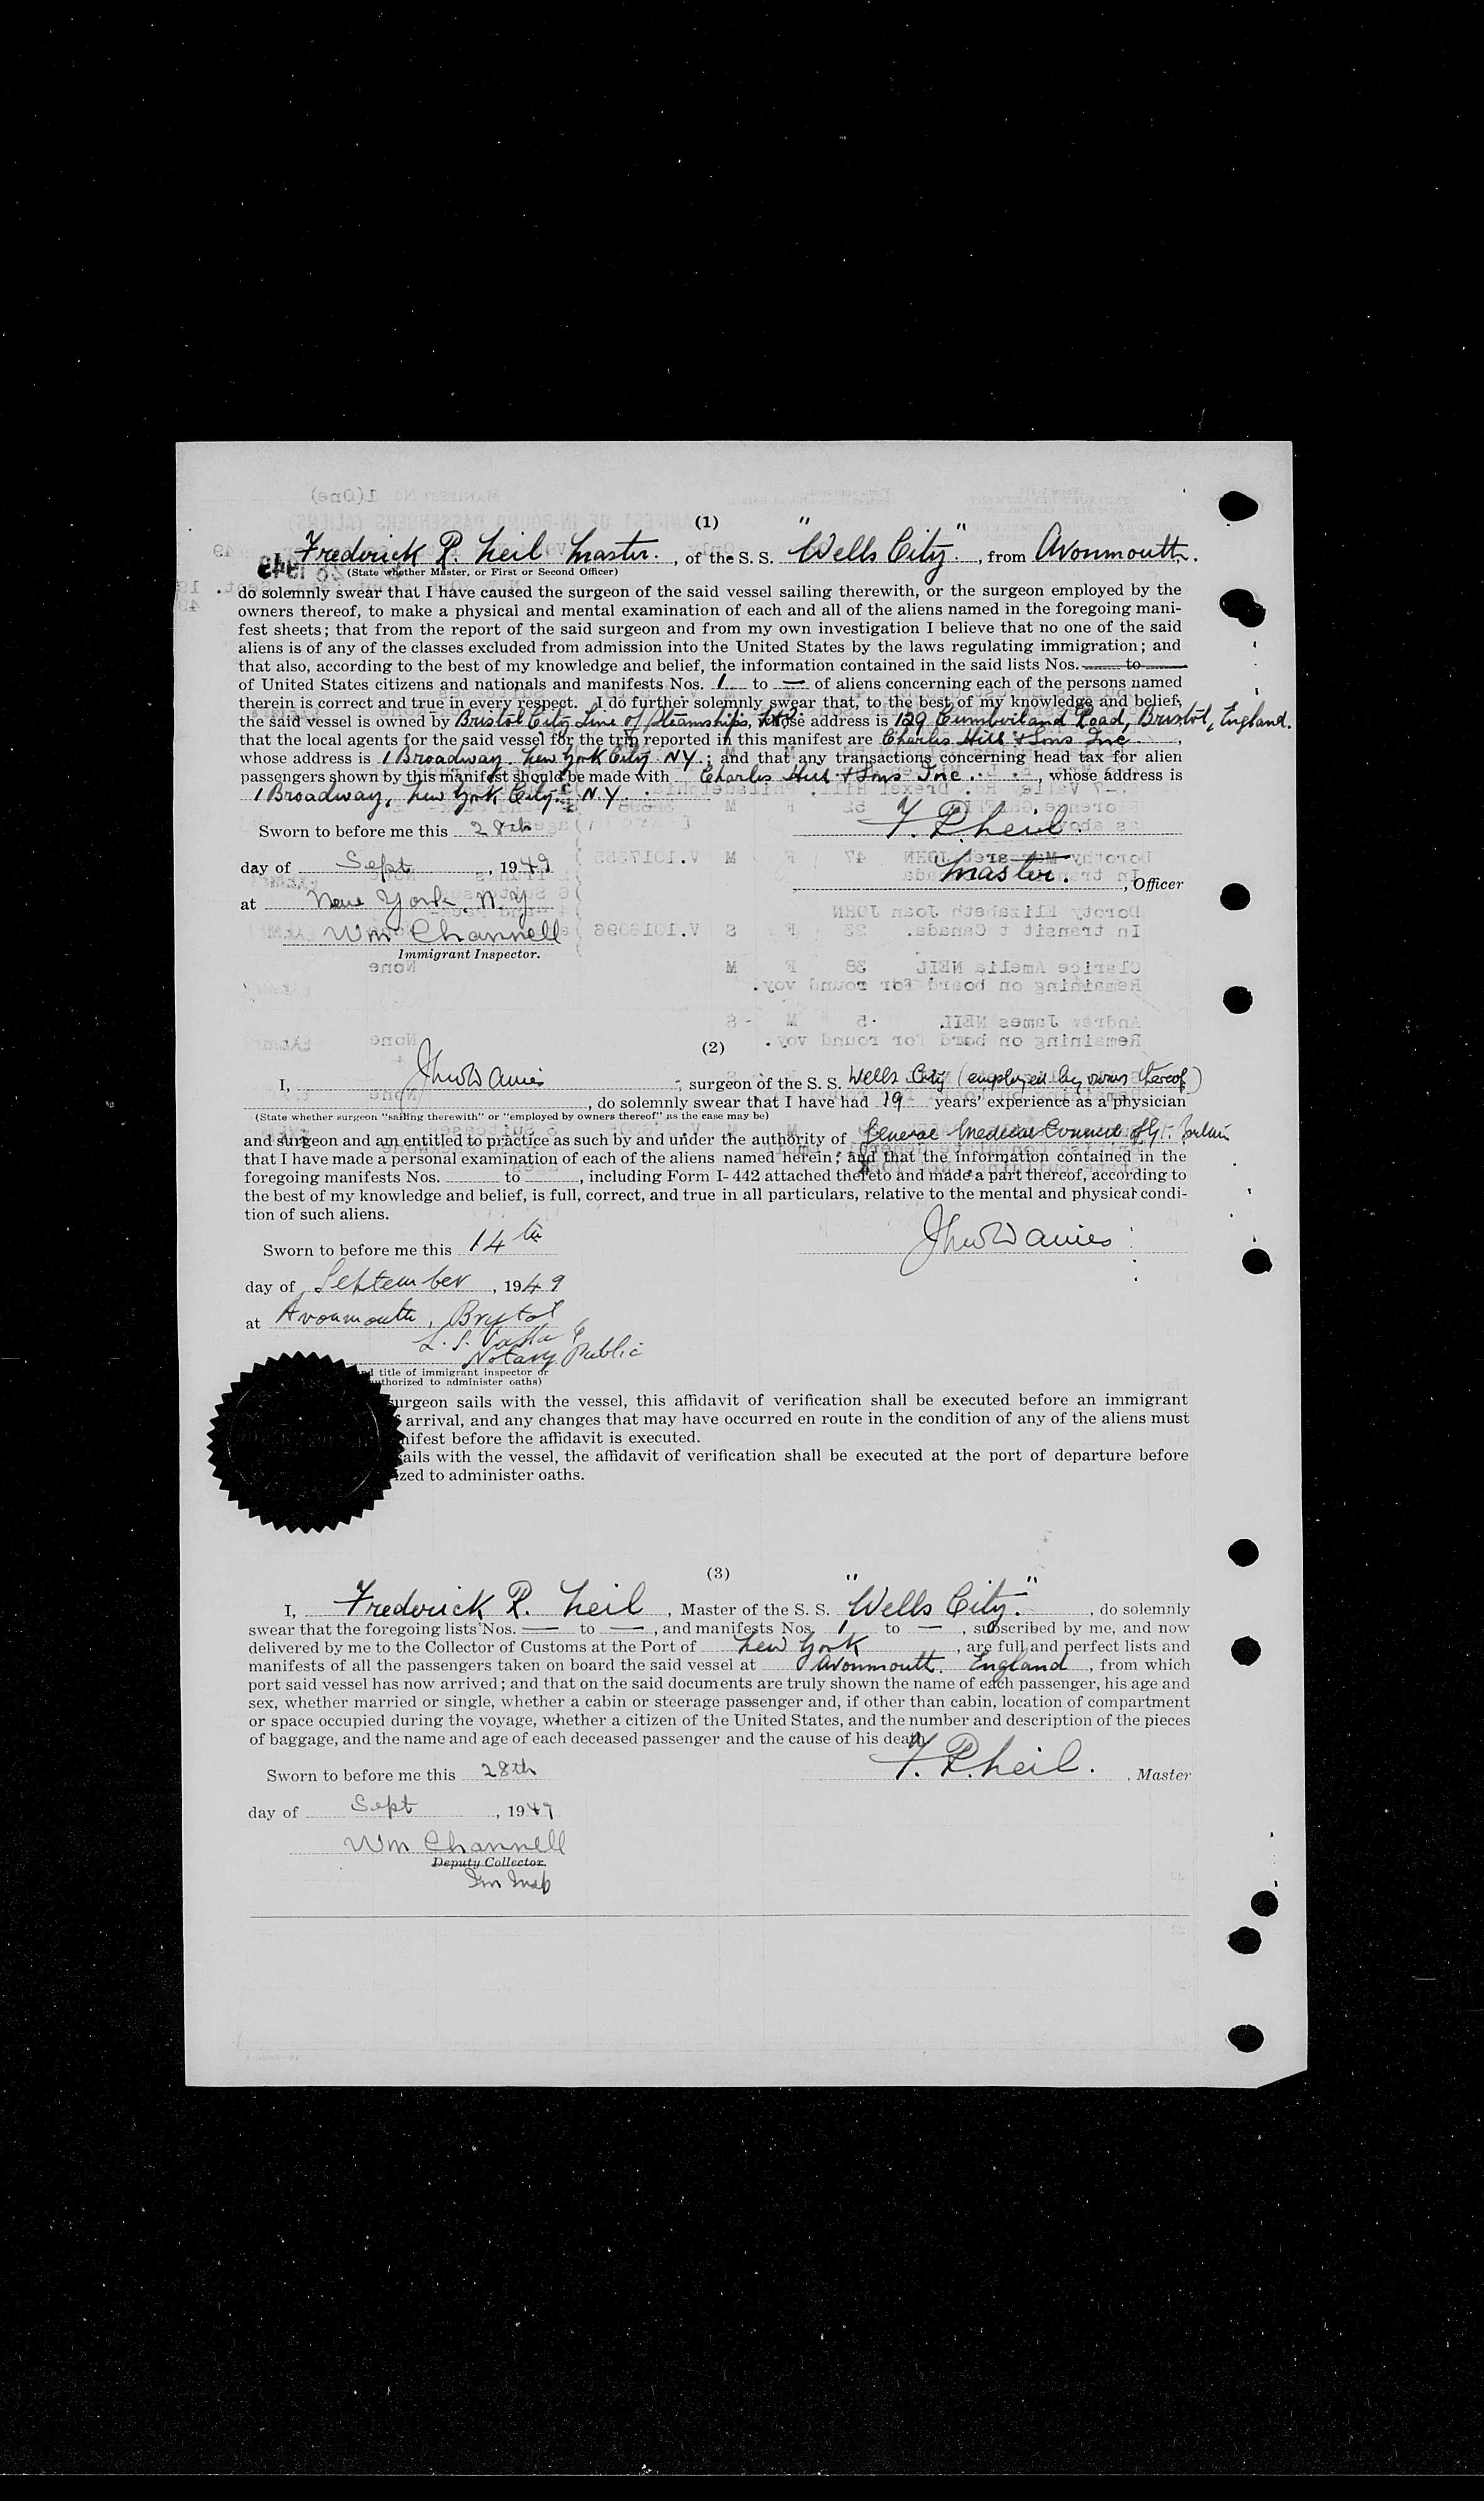 (1)
Frederick R. Neil Master. , of the S. S. "Wells City" , from Avonmouth.
(State whether Master, or First or Second Officer)
do solemnly swear that I have caused the surgeon of the said vessel sailing therewith, or the surgeon employed by the
owners thereof, to make a physical and mental examination of each and all of the aliens named in the foregoing mani-
fest sheets; that from the report of the said surgeon and from my own investigation I believe that no one of the said
aliens is of any of the classes excluded from admission into the United States by the laws regulating immigration; and
that also, according to the best of my knowledge and belief, the information contained in the said lists Nos. to
of United States citizens and nationals and manifests Nos. 1 to — of aliens concerning each of the persons named
therein is correct and true in every respect. I do further solemnly swear that, to the best of my knowledge and belief,
the said vessel is owned by Bristol City Line of Steamships, Ltd. whose address is 129 Cumberland Road, Bristol, England.
that the local agents for the said vessel for the trip reported in this manifest are Charles Hill & Sons Inc. ,
whose address is 1 Broadway New York City NY ; and that any transactions concerning head tax for alien
passengers shown by this manifest should be made with Charles Hill & Sons Inc. , whose address is
1 Broadway, New York City. N.Y.
Sworn to before me this 28th
F. R. Neil.
day of Sept , 1949
Master. , Officer
at New York, N.Y
Wm Channell
Immigrant Inspector.
(2)
I, , surgeon of the S. S. Wells City (employed by owners thereof)
, do solemnly swear that I have had 19 years' experience as a physician
(State whether surgeon "sailing therewith" or "employed by owners thereof" as the case may be)
and surgeon and am entitled to practice as such by and under the authority of General Medical Council of Gt. Britain
that I have made a personal examination of each of the aliens named herein; and that the information contained in the
foregoing manifests Nos. to , including Form I-442 attached thereto and made a part thereof, according to
the best of my knowledge and belief, is full, correct, and true in all particulars, relative to the mental and physical condi-
tion of such aliens.
Sworn to before me this 14th
Davies
day of September , 1949
at Avonmouth, Bristol
Notary Public
title of immigrant inspector or
authorized to administer oaths)
urgeon sails with the vessel, this affidavit of verification shall be executed before an immigrant
arrival, and any changes that may have occurred en route in the condition of any of the aliens must
nifest before the affidavit is executed.
ails with the vessel, the affidavit of verification shall be executed at the port of departure before
ized to administer oaths.
(3)
I, Frederick R. Neil , Master of the S. S. "Wells City." , do solemnly
swear that the foregoing lists Nos. — to — , and manifests Nos. 1 to — , subscribed by me, and now
delivered by me to the Collector of Customs at the Port of New York , are full and perfect lists and
manifests of all the passengers taken on board the said vessel at Avonmouth. England , from which
port said vessel has now arrived; and that on the said documents are truly shown the name of each passenger, his age and
sex, whether married or single, whether a cabin or steerage passenger and, if other than cabin, location of compartment
or space occupied during the voyage, whether a citizen of the United States, and the number and description of the pieces
of baggage, and the name and age of each deceased passenger and the cause of his death.
Sworn to before me this 28th
F. R. Neil. , Master
day of Sept , 1949
Wm Channell
Deputy Collector.
Im Insp